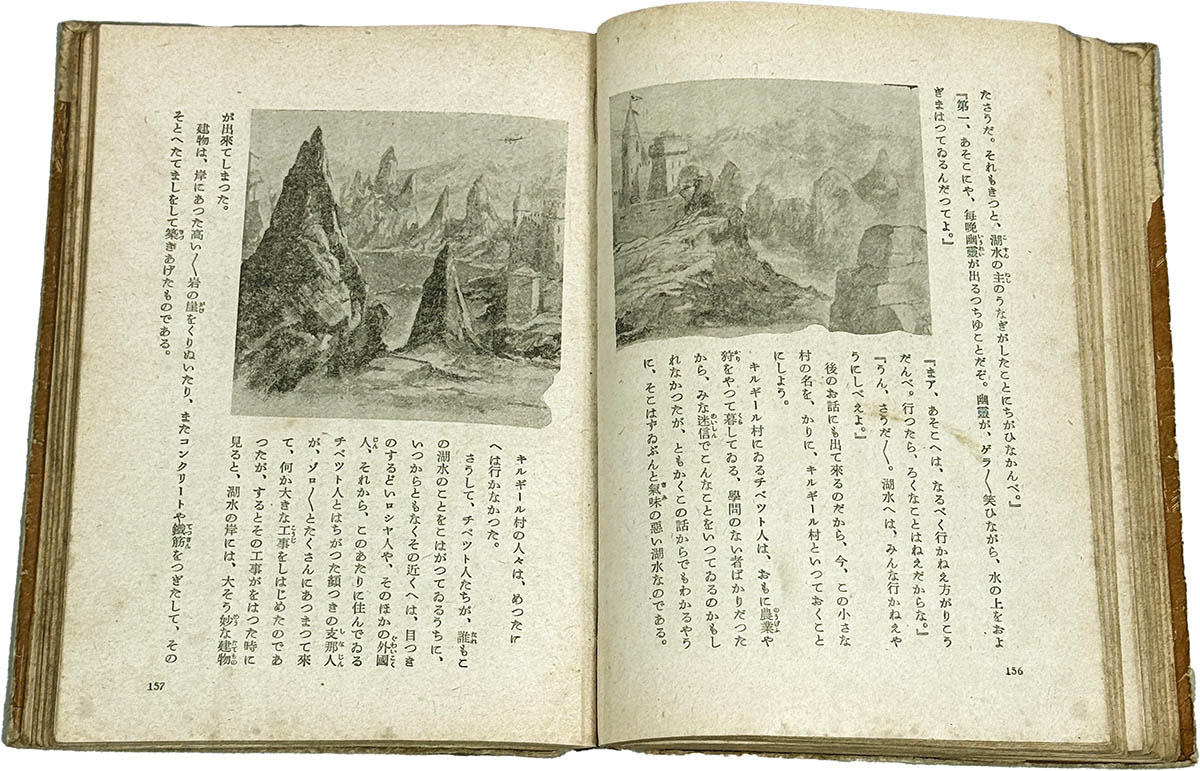 たさうだ。それもきつと、湖水の主のうなぎがしたことにちがひなかんべ。』
『第一、あそこにや、每晩幽靈が出るつちゆことだぞ。幽靈が、ゲラ〱笑ひながら、水の上をおよ
ぎまはつてゐるんだつてよ。』
『まア、あそこへは、なるべく行かねえ方がりこう
だんべ。行つたら、ろくなことはねえだからな。』
『うん、さうだ〱。湖水へは、みんな行かねえや
うにしべえよ。』
後のお話にも出て來るのだから、今、この小さな
村の名を、かりに、キルギール村といつておくこと
にしよう。
キルギール村にゐるチベツト人は、おもに農業や
狩をやつて暮してゐる、學問のない者ばかりだつた
から、みな迷信でこんなことをいつてゐるのかもし
れなかつたが、ともかくこの話からでもわかるやう
に、そこはずゐぶんと氣味の惡い湖水なのである。
156
キルギール村の人々は、めつたに
へは行かなかつた。
さうして、チベツト人たちが、誰もこ
の湖水のことをこはがつてゐるうちに、
いつからともなくその近くへは、目つき
のするどいロシヤ人や、そのほかの外國
人、それから、このあたりに住んでゐる
チベツト人とはちがつた顏つきの支那人
が、ゾロ〱とたくさんにあつまつて來
て、何か大きな工事をしはじめたのであ
つたが、するとその工事がをはつた時に
見ると、湖水の岸には、大そう妙な建物
が出來てしまつた。
建物は、岸にあつた高い〱岩の崖をくりぬいたり、またコンクリートや鐵筋をつぎたして、その
そとへたてましをして築きあげたものである。
157